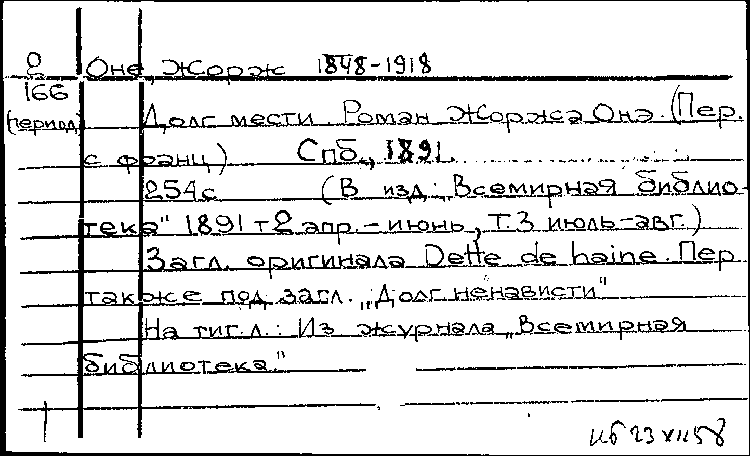 О Онэ, Жорж 1848-1918
166
(период) Долг мести. Роман Жоржа Онэ. (Пер.
с франц) Спб., 1891.
254с. (В изд.: „Всемирная библио-
тека" 1891 т 2 апр.-июнь, т.3 июль-авг.)
Загл. оригинала Dette de haine. Пер
также под загл. „Долг ненависти"
На тит.л.: Из журнала „Всемирная
библиотека."